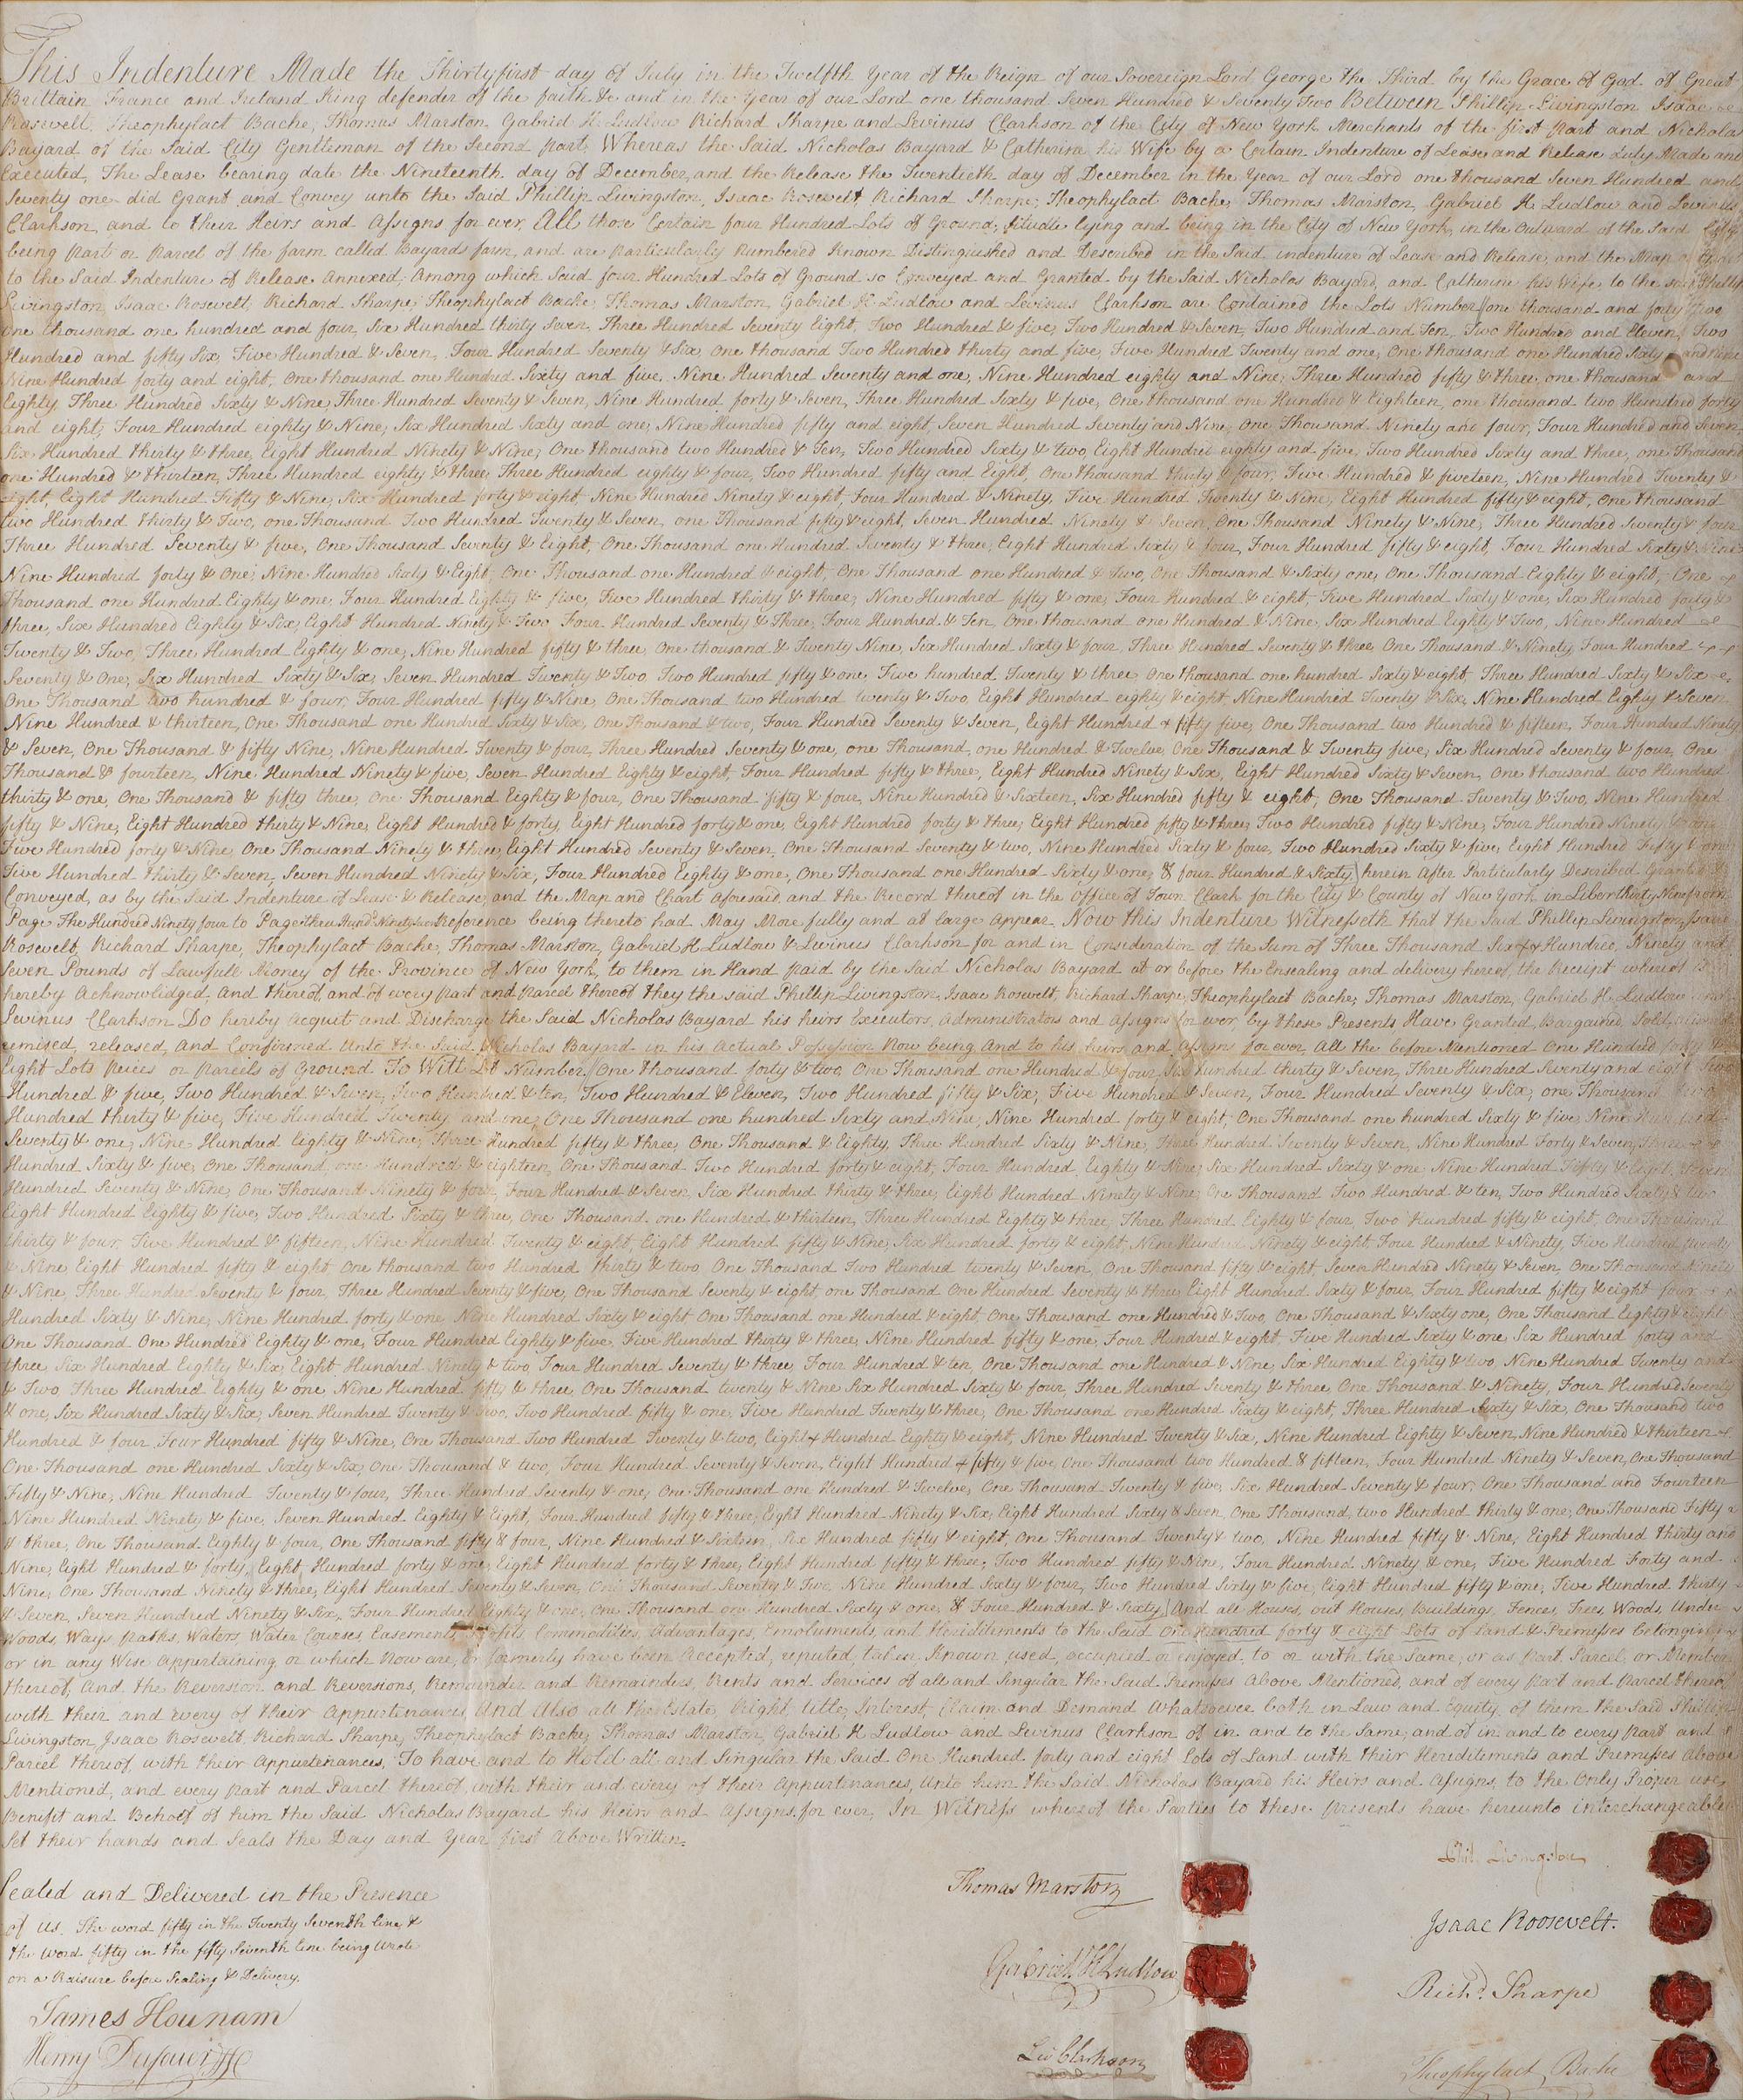 This Indenture Made the Thirtyfirst day of July in the Twelfth Year of the Reign of our Sovereign Lord George the Third by the Grace of God of Great
Brittain France and Ireland King defender of the faith &c and in the Year of our Lord one thousand Seven Hundred & Seventy Two Between Phillip Livingston Isaac
Rosevelt, Theophylact Bache, Thomas Marston, Gabriel H. Ludlow Richard Sharpe and Levinus Clarkson of the City of New York Merchants of the first Part and Nicholas
Bayard of the Said City Gentleman of the Second part, Whereas the Said Nicholas Bayard & Catherine his Wife by a Certain Indenture of Lease and Release duly Made and
Executed, The Lease bearing date the Nineteenth day of December, and the Release the Twentieth day of December in the Year of our Lord one thousand Seven Hundred and
Seventy one did Grant and Convey unto the Said Phillip Livingston, Isaac Rosevelt Richard Sharpe, Theophylact Bache, Thomas Marston, Gabriel H. Ludlow and Levinus
Clarkson, and to their Heirs and Assigns for ever, All those Certain four Hundred Lots of Ground, Situate lying and being in the City of New York, in the Outward of the Said City
being part or Parcel of the farm called Bayards farm, and are Particularly Numbered Known Distinguished and Described in the Said indenture of Lease and Release, and the Map or Chart
to the Said Indenture of Release Annexed, Among which Said four Hundred Lots of Ground so Conveyed and Granted by the Said Nicholas Bayard, and Catherine his Wife, to the said Phillip
Livingston, Isaac Rosevelt, Richard Sharpe, Theophylact Bache, Thomas Marston, Gabriel H. Ludlow and Levinus Clarkson are Contained the Lots Number one thousand and forty two
One thousand one hundred and four, Six Hundred thirty Seven, Three Hundred Seventy Eight, Two Hundred & five, Two Hundred & Seven, Two Hundred and Ten, Two Hundred and Eleven, Two
Hundred and fifty Six, Five Hundred & Seven, Four Hundred Seventy & Six, One thousand Two Hundred thirty and five, Five Hundred Twenty and one, One thousand one Hundred Sixty and nine
Nine Hundred forty and eight, One thousand one Hundred Sixty and five, Nine Hundred Seventy and one, Nine Hundred eighty and Nine, Three Hundred fifty & three, one thousand and
Eighty, Three Hundred Sixty & Nine, Three Hundred Seventy & Seven, Nine Hundred forty & Seven, Three Hundred Sixty & five, One thousand one Hundred & Eighteen, one thousand two Hundred forty
and eight, Four Hundred eighty & Nine, Six Hundred Sixty and one, Nine Hundred fifty and eight, Seven Hundred Seventy and Nine, One Thousand Ninety and four, Four Hundred and Seven,
Six Hundred thirty & three, Eight Hundred Ninety & Nine, One thousand two Hundred & Ten, Two Hundred Sixty & two, Eight Hundred eighty and five, Two Hundred Sixty and three, one Thousand
one Hundred & thirteen, Three Hundred eighty & three, Three Hundred eighty & four, Two Hundred fifty and Eight, One thousand thirty & four, Five Hundred & fiveteen, Nine Hundred Twenty &
eight, Eight Hundred Fifty & Nine, Six Hundred forty & eight Nine Hundred Ninety & eight Four Hundred & Ninety, Five Hundred Twenty & Nine, Eight Hundred fifty & eight, One thousand
two Hundred thirty & Two, one Thousand Two Hundred Twenty & Seven, one Thousand fifty & eight, Seven Hundred Ninety & Seven, One Thousand Ninety & Nine, Three Hundred Seventy & four
Three Hundred Seventy & five, One Thousand Seventy & Eight, One Thousand one Hundred Seventy & three, Eight Hundred Sixty & four, Four Hundred fifty & eight, Four Hundred Sixty & Nine
Nine Hundred forty & One, Nine Hundred Sixty & Eight, One Thousand one Hundred & eight, One Thousand one Hundred & Two, One Thousand & Sixty one, One Thousand Eighty & eight, One
Thousand one Hundred Eighty & one, Four Hundred Eighty & five, Five Hundred thirty & three, Nine Hundred fifty & one, Four Hundred & eight, Five Hundred Sixty & one, Six Hundred forty &
three, Six Hundred Eighty & Six, Eight Hundred Ninety & Two Four Hundred Seventy & Three, Four Hundred & Ten, One thousand one Hundred & Nine, Six Hundred Eighty & Two, Nine Hundred
Twenty & Two, Three Hundred Eighty & one, Nine Hundred fifty & three, One thousand & Twenty Nine, Six Hundred Sixty & four, Three Hundred Seventy & three One Thousand & Ninety, Four Hundred
Seventy & One, Six Hundred Sixty & Six, Seven Hundred Twenty & Two Two Hundred fifty & one, Five hundred Twenty & three, One thousand one hundred Sixty & eight, Three Hundred Sixty & Six
One Thousand two hundred & four, Four Hundred fifty & Nine, One Thousand two Hundred twenty & Two, Eight Hundred eighty & eight, Nine Hundred Twenty & Six, Nine Hundred Eighty & Seven
Nine Hundred & thirteen, One Thousand one Hundred Sixty & Six, One Thousand & two, Four Hundred Seventy & Seven, Eight Hundred & fifty five, One Thousand two Hundred & fifteen, Four Hundred Ninety
& Seven, One Thousand & fifty Nine, Nine Hundred Twenty & four, Three Hundred Seventy & one, one Thousand, one Hundred & Twelve, One Thousand & Twenty five, Six Hundred Seventy & four, One
Thousand & fourteen, Nine Hundred Ninety & five, Seven Hundred Eighty & eight, Four Hundred fifty & three, Eight Hundred Ninety & Six, Eight Hundred Sixty & Seven, One thousand two Hundred
thirty & one, One Thousand & fifty three, One Thousand Eighty & four, One Thousand fifty & four, Nine Hundred & Sixteen, Six Hundred fifty & eight, One Thousand Twenty & Two, Nine Hundred
fifty & Nine, Eight Hundred thirty & Nine, Eight Hundred & forty, Eight Hundred forty & one, Eight Hundred forty & three, Eight Hundred fifty & three, Two Hundred fifty & Nine, Four Hundred Ninety & one
Five Hundred forty & Nine, One Thousand Ninety & three, Eight Hundred Seventy & Seven, One Thousand Seventy & two, Nine Hundred Sixty & four, Two Hundred Sixty & five, Eight Hundred Fifty & one
Five Hundred thirty & Seven, Seven Hundred Ninety & Six, Four Hundred Eighty & one, One Thousand one Hundred Sixty & one, & four Hundred & Sixty herein after Particularly Described Granted &
Conveyed, as by the Said Indenture of Lease & Release, and the Map and Chart aforesaid, and the Record thereof in the Office of Town Clark for the City & County of New York in Liber thirty Nine from
Page The Hundred Ninety four to Page three Hund. Ninety Reference being thereto had May More fully and at large appear. Now this Indenture Witnesseth that the Said Phillip Livingston, Isaac
Rosevelt, Richard Sharpe, Theophylact Bache, Thomas Marston, Gabriel H. Ludlow & Levinus Clarkson for and in Consideration of the Sum of Three Thousand Six Hundred, Ninety and
Seven Pounds of Lawfull Money of the Province of New York, to them in Hand paid by the Said Nicholas Bayard at or before the Ensealing and delivery hereof, the Receipt whereof is
hereby Acknowlidged, and thereof, and of every part and parcel thereof they the said Phillip Livingston, Isaac Rosevelt, Richard Sharpe, Theophylact Bache, Thomas Marston, Gabriel H. Ludlow and
Levinus Clarkson Do hereby acquit and Discharge the Said Nicholas Bayard his heirs Executors, Administrators and Assigns for ever, by these Presents Have Granted, Bargained, Sold,
remised, released, and Confirmed Unto the Said Nicholas Bayard in his actual Possession Now being And to his heirs and Assigns for ever, All the before Mentioned One Hundred forty &
Eight Lots peices or parcels of Ground To Witt Lot Number One thousand forty & two, One Thousand one Hundred & four, Six hundred thirty & Seven, Three Hundred Seventy and eight Two
Hundred & five, Two Hundred & Seven, Two Hundred & ten, Two Hundred & Eleven, Two Hundred fifty & Six, Five Hundred & Seven, Four Hundred Seventy & Six, one Thousand two
Hundred thirty & five, Five Hundred Twenty and one, One Thousand one hundred Sixty and Nine, Nine Hundred forty & eight, One Thousand one hundred Sixty & five, Nine Hundred
Seventy & one, Nine Hundred Eighty & Nine, Three hundred fifty & three, One Thousand & Eighty, Three Hundred Sixty & Nine, Three Hundred Seventy & Seven, Nine Hundred Forty & Seven, Three
Hundred Sixty & five, One Thousand one Hundred & eighteen, One Thousand Two Hundred forty & eight, Four Hundred Eighty & Nine, Six Hundred Sixty & one, Nine Hundred Fifty & Eight, Seven
Hundred Seventy & Nine, One Thousand Ninety & four, Four Hundred & Seven, Six Hundred thirty & three, Eight Hundred Ninety & Nine, One Thousand Two Hundred & ten, Two Hundred Sixty & two
Eight Hundred Eighty & five, Two Hundred Sixty & three, One Thousand one Hundred & thirteen, Three Hundred Eighty & three, Three Hundred Eighty & four, Two Hundred fifty & eight, One Thousand
thirty & four, Five Hundred & fifteen, Nine Hundred Twenty & eight, Eight Hundred fifty & Nine, Six Hundred forty & eight, Nine Hundred Ninety & eight, Four Hundred & Ninety, Five Hundred twenty
& Nine Eight Hundred fifty & eight, One thousand two Hundred thirty & two, One Thousand Two Hundred twenty & Seven, One Thousand fifty & eight, Seven Hundred Ninety & Seven, One Thousand Ninety
& Nine, Three Hundred Seventy & four, Three Hundred Seventy & five, One Thousand Seventy & eight, one Thousand One Hundred Seventy & three Eight Hundred Sixty & four, Four Hundred fifty & eight four
Hundred Sixty & Nine, Nine Hundred forty & one Nine Hundred Sixty & eight One Thousand one Hundred & eight, One Thousand one Hundred & Two, One Thousand & Sixty one, One Thousand Eighty & eight
One Thousand One Hundred Eighty & one, Four Hundred Eighty & five, Five Hundred thirty & three, Nine Hundred fifty & one, Four Hundred & eight, Five Hundred Sixty & one Six Hundred forty and
three Six Hundred Eighty & Six, Eight Hundred Ninety & two Four Hundred Seventy & three, Four Hundred & ten, One Thousand one Hundred & Nine Six Hundred Eighty & two, Nine Hundred Twenty and
& Two, Three Hundred Eighty & one Nine Hundred fifty & three, One Thousand twenty & Nine Six Hundred Sixty & four, Three Hundred Seventy & three, One Thousand & Ninety, Four Hundred Seventy
& one, Six Hundred Sixty & Six, Seven Hundred Twenty & two, Two Hundred fifty & one, Five Hundred Twenty & three, One Thousand one Hundred Sixty & eight, Three Hundred Sixty & Six, One Thousand two
Hundred & four, Four Hundred fifty & Nine, One Thousand Two Hundred Twenty & two, Eight Hundred Eighty & eight, Nine Hundred Twenty & Six, Nine Hundred Eighty & Seven, Nine Hundred & thirteen
One Thousand one Hundred Sixty & Six, One Thousand & two, Four Hundred Seventy & Seven, Eight Hundred & fifty & five, One Thousand two Hundred & fifteen, Four Hundred Ninety & Seven, One Thousand
Fifty & Nine, Nine Hundred Twenty & four, Three Hundred Seventy & one, One Thousand one Hundred & Twelve, One Thousand Twenty & five, Six Hundred Seventy & four, One Thousand and Fourteen
Nine Hundred Ninety & five, Seven Hundred Eighty & Eight, Four Hundred fifty & three, Eight Hundred Ninety & Six, Eight Hundred Sixty & Seven, One Thousand, two Hundred thirty & one, One Thousand Fifty
& three, One Thousand Eighty & four, One Thousand fifty & four, Nine Hundred & Sixteen, Six Hundred fifty & eight, One Thousand Twenty & two, Nine Hundred fifty & Nine, Eight Hundred thirty and
Nine, Eight Hundred & forty, Eight Hundred forty & one, Eight Hundred forty & three, Eight Hundred fifty & three, Two Hundred fifty & Nine, Four Hundred Ninety & one, Five Hundred Forty and
Nine, One Thousand Ninety & three, Eight Hundred Seventy & Seven, One Thousand Seventy & Two, Nine Hundred Sixty & four, Two Hundred Sixty & five, Eight Hundred fifty & one, Five Hundred thirty
& Seven, Seven Hundred Ninety & Six, Four Hundred Eighty & one, One Thousand one Hundred Sixty & one, & Four Hundred & Sixty And all Houses, out Houses, Buildings, Fences, Trees, Woods, Under
Woods, Ways, paths, Waters, Water Courses, Easements, Profits, Commodities, Advantages, Emoluments, and Heriditments to the Said One Hundred forty & eight Lots of Land & Premisses belonging
or in any Wise appertaining or which Now are, or formerly have been Accepted, reputed, taken, Known, used, occupied or enjoyed, to or with the Same, or as Part, Parcel, or Member
thereof, and the Reversion and Reversions, Remainder and Remainders, Rents and Services of all and Singular the Said Premises Above Mentioned, and of every Part and Parcel thereof
with their and every of their Appurtenances, And Also all the Estate, Right, title, Interest, Claim and Demand Whatsoever both in Law and Equity, of them the Said Phillip
Livingston, Isaac Rosevelt, Richard Sharpe, Theophylact Bache, Thomas Marston, Gabriel H Ludlow and Levinus Clarkson of in and to the Same, and of in and to every part and
Parcel thereof, with their Appurtenances, To have and to Hold all and Singular the Said One Hundred forty and eight Lots of Land with their Heriditements and Premisses above
Mentioned, and every Part and Parcel thereof, with their and every of their Appurtenances, Unto him the Said Nicholas Bayard his Heirs and Assigns, to the Only Proper use,
Benifit and Behoof of him the Said Nicholas Bayard his Heirs and Assigns for ever, In Witness whereof the Parties to these presents have hereunto interchangeably
Set their hands and Seals the Day and Year first Above Written.
Sealed and Delivered in the Presence
of us. The word fifty in the Twenty Seventh line &
the word fifty in the fifty Seventh line being wrote
on a Raisure before Sealing & Delivery.
James Hounam
Henry
Thomas Marston
Gabriel H Ludlow
Lev Clarkson
Phil. Livingston
Isaac Roosevelt.
Richd. Sharpe
Theophylact Bache